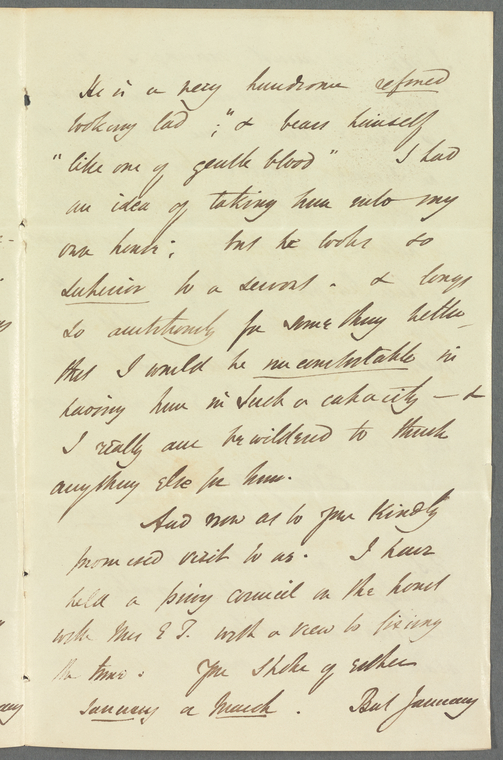 He is a very handsome refined
looking lad ;" & bears himself
"like one of gentle blood" I had
an idea of taking him into my
own house; but he looks so
superior to a servant. & longs
so ambitiously for something better,
that I would be uncomfortable in
having him in such a capacity — &
I really am bewildered to think
anything else for him.
And now as to your kindly
promised visit to us. I have
held a privy council on the
with Mrs E T. with a view to fixing
the time. You spoke of either
January or March. But January